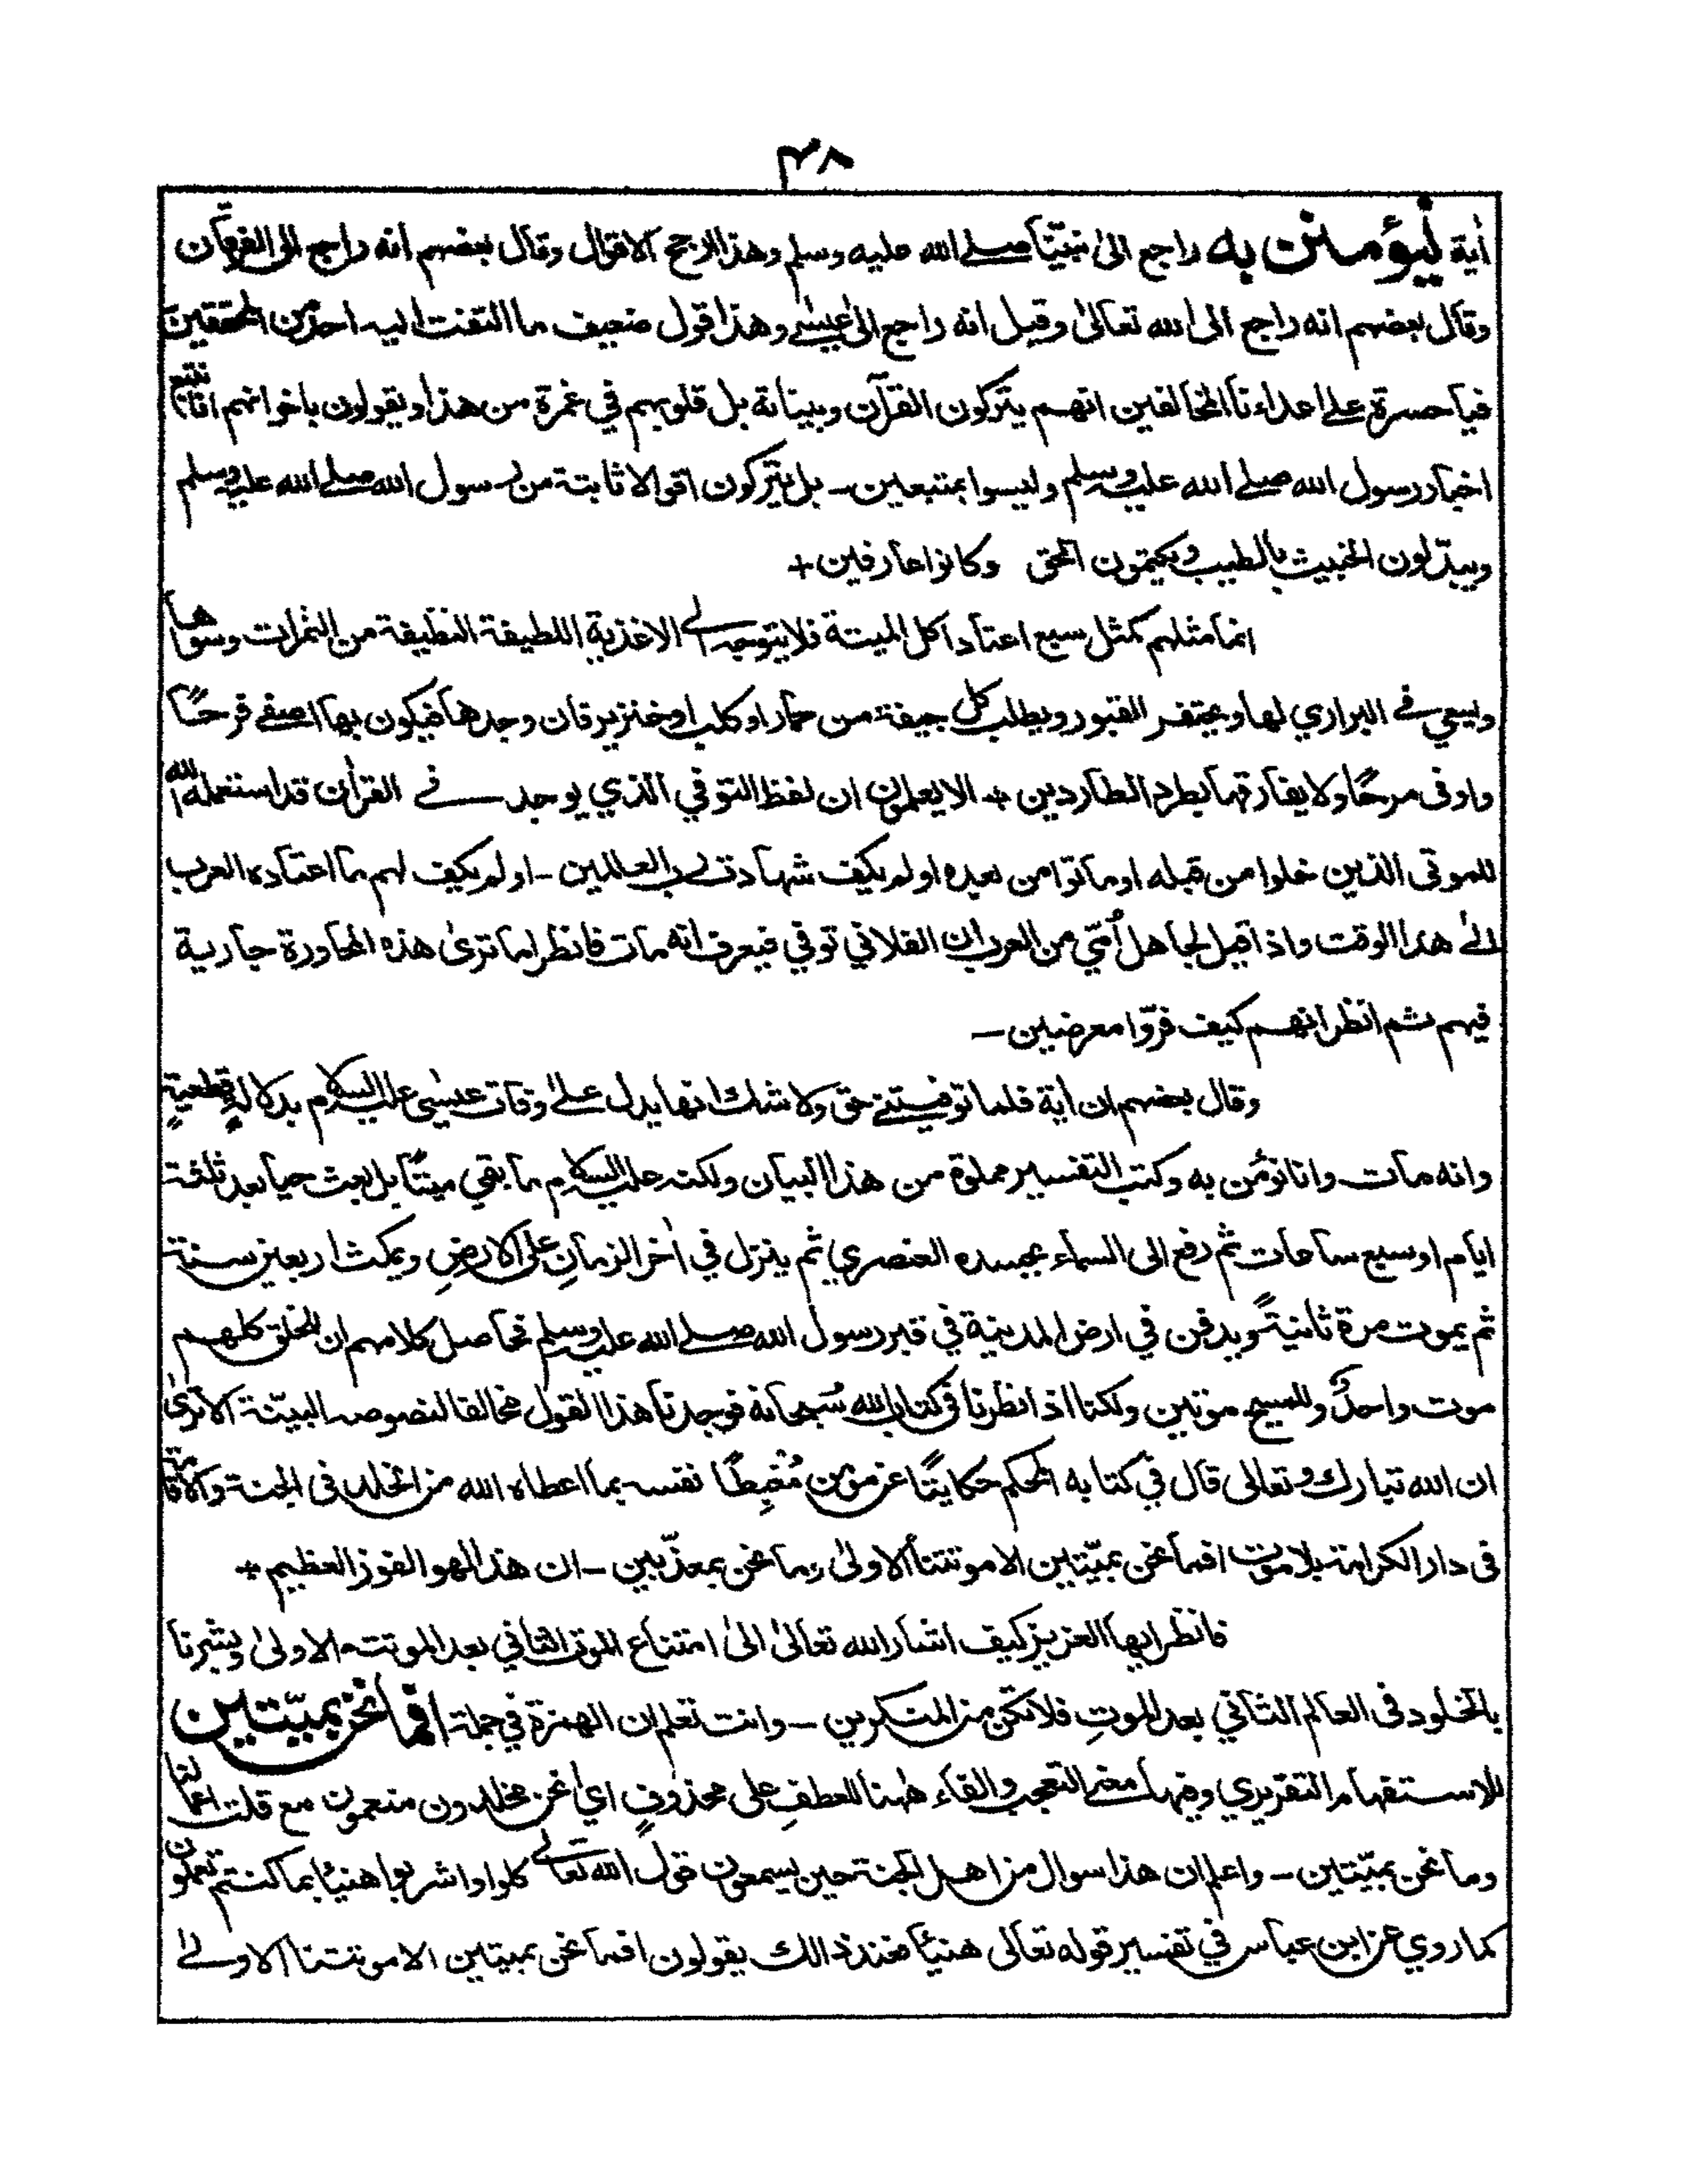 ٤٨
اٰية ليؤمنن به راجع الىٰ نبيّنا صلے الله عليه وسلم وهذا ارجح الاقوال وقال بعضهم انه راجع الى الفرقان
وقال بعضهم انه راجع الى الله تعالىٰ وقيل انه راجع الىٰ عيسٰے وهذا قول ضعيف ما التفت اليه احد من المحققين
فيا حسرة علے اعداءنا المخالفين انهم يتركون القرآن وبيناته بل قلوبهم في غمرة من هذا ويقولون باخوانهم انا نتبع
اخبار رسول الله صلے الله عليه وسلم وليسوا بمتبعين ـ بل يتركون اقوالا ثابتة من رسول الله صلے الله عليه وسلم
ويبدّلون الخبيث بالطيب ويكتمون الحق وكانوا عارفين +
انما مثلهم كمثل سبع اعتاد اكل الميتة فلا يتوجه الے الاغذية اللطيفة النظيفة من الثمرات وسواها
ويسعي فے البراري لها ويحتفر القبور ويطلب كل جيفة من حمار او كلب او خنزير فان وجدها فيكون بها اصفے فرحًا
واوفى مرحًا ولا يفارقها بطرد الطاردين + الا يعلمون ان لفظ التوفي الذي يوجد فے القراٰن قد استعمله الله
للموتى الذين خلوا من قبله او ماتوا من بعده او لم يكف شهادت رب العالمين ـ او لم يكف لهم ما اعتاده العرب
الےٰ هذا الوقت واذا قيل لجاهل اُمّي من العرب ان الفلاني توفي فيعرف انه مات فانظر اما ترىٰ هذه المحاورة جارية
فيهم ثم انظر انهم كيف فرّوا معرضين ـ
وقال بعضهم ان اٰية فلما توفيتنے حق ولا شك انها يدل علےٰ وفات عيسٰى عليه السلام بدلالةٍ قطعيةٍ
وانه مات وانا نؤمن به وكتب التفسير مملوة من هذا البيان ولكنه عليه السلام ما بقي ميتًا بل بعث حيا بعد ثلثة
ايام او سبع ساعات ثم رفع الى السماء بجسده العنصري ثم ينزل في اٰخر الزمانِ على الارضِ ويمكث اربعين سنة
ثم يموت مرة ثانيةً ويدفن في ارض المدينة في قبر رسول الله صلے الله عليه وسلم فحاصل كلامهم ان للخلق كلهم
موت واحدٌ وللمسيح موتين ولكنا اذا نظرنا في كتاب الله سُبحانه فوجدنا هذا القول مخالفا لنصوصه البيّنة الا ترىٰ
ان الله تبارك وتعالى قال في كتابه المحكم حكايتًا عن مؤمن مُغبِطًا نفسه بما اعطاه الله من الخلد فى الجنة والاقامة
فى دار الكرامة بلا موت افما نحن بميّتين الا موتتنا الاولىٰ وما نحن بمعذّبين ـ ان هذا لهو الفوز العظيم +
فانظر ايها العزيز كيف اشار الله تعالىٰ الىٰ امتناع الموت الثاني بعد الموتت الاولىٰ وبشرنا
بالخلود فى العالم الثاني بعد الموتِ فلا تكن من المنكرين ـ وانت تعلم ان الهمزة في جملة افما نحن بميّتين
للاستفهام التقريري وفيها معنے التعجب والفاء هٰهنا للعطفِ على محذوفٍ اي أنحن مخلدون منعمون مع قلت اعمالنا
وما نحن بميّتين ـ واعلم ان هذا سوال من اهل الجنة حين يسمعون قول الله تعالے كلوا واشربوا هنيئا بما كنتم تعملون
كما روي عن ابن عباس في تفسير قوله تعالى هنيئًا فعند ذالك يقولون افما نحن بميتين الا موتتنا الاولےٰ